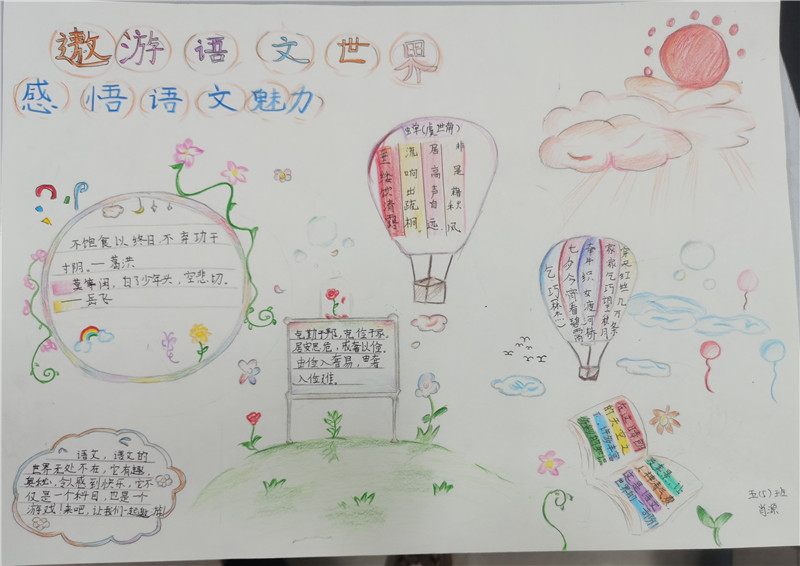 遨游语文世界
感悟语文魅力
不饱食以终日,不弃功于
寸阴。—葛洪
莫等闲,白了少年头,空悲切。
—岳飞
蝉(虞世南)
垂緌饮清露
流响出疏桐
居高声自远
非是藉秋风
克勤于邦,克俭于家。
居安思危,戒奢以俭。
由俭入奢易,由奢
入俭难。
乞巧(林杰)
七夕今宵看碧霄
牵牛织女渡河桥
家家乞巧望秋月
穿尽红丝几万条
语文,语文的
世界无处不在,它有趣、
奥秘,令人感到快乐,它不
仅是一个科目,也是一个
游戏!来吧,让我们一起遨游!
五(5)班